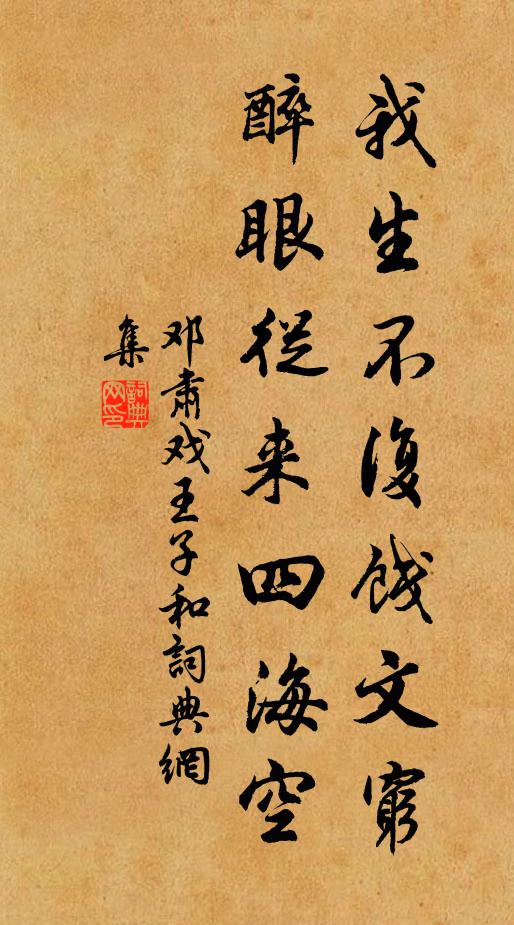 我生不復餞文窮
醉眼從来四海空
邓肅戏王子和詞典網
集
詞典网印